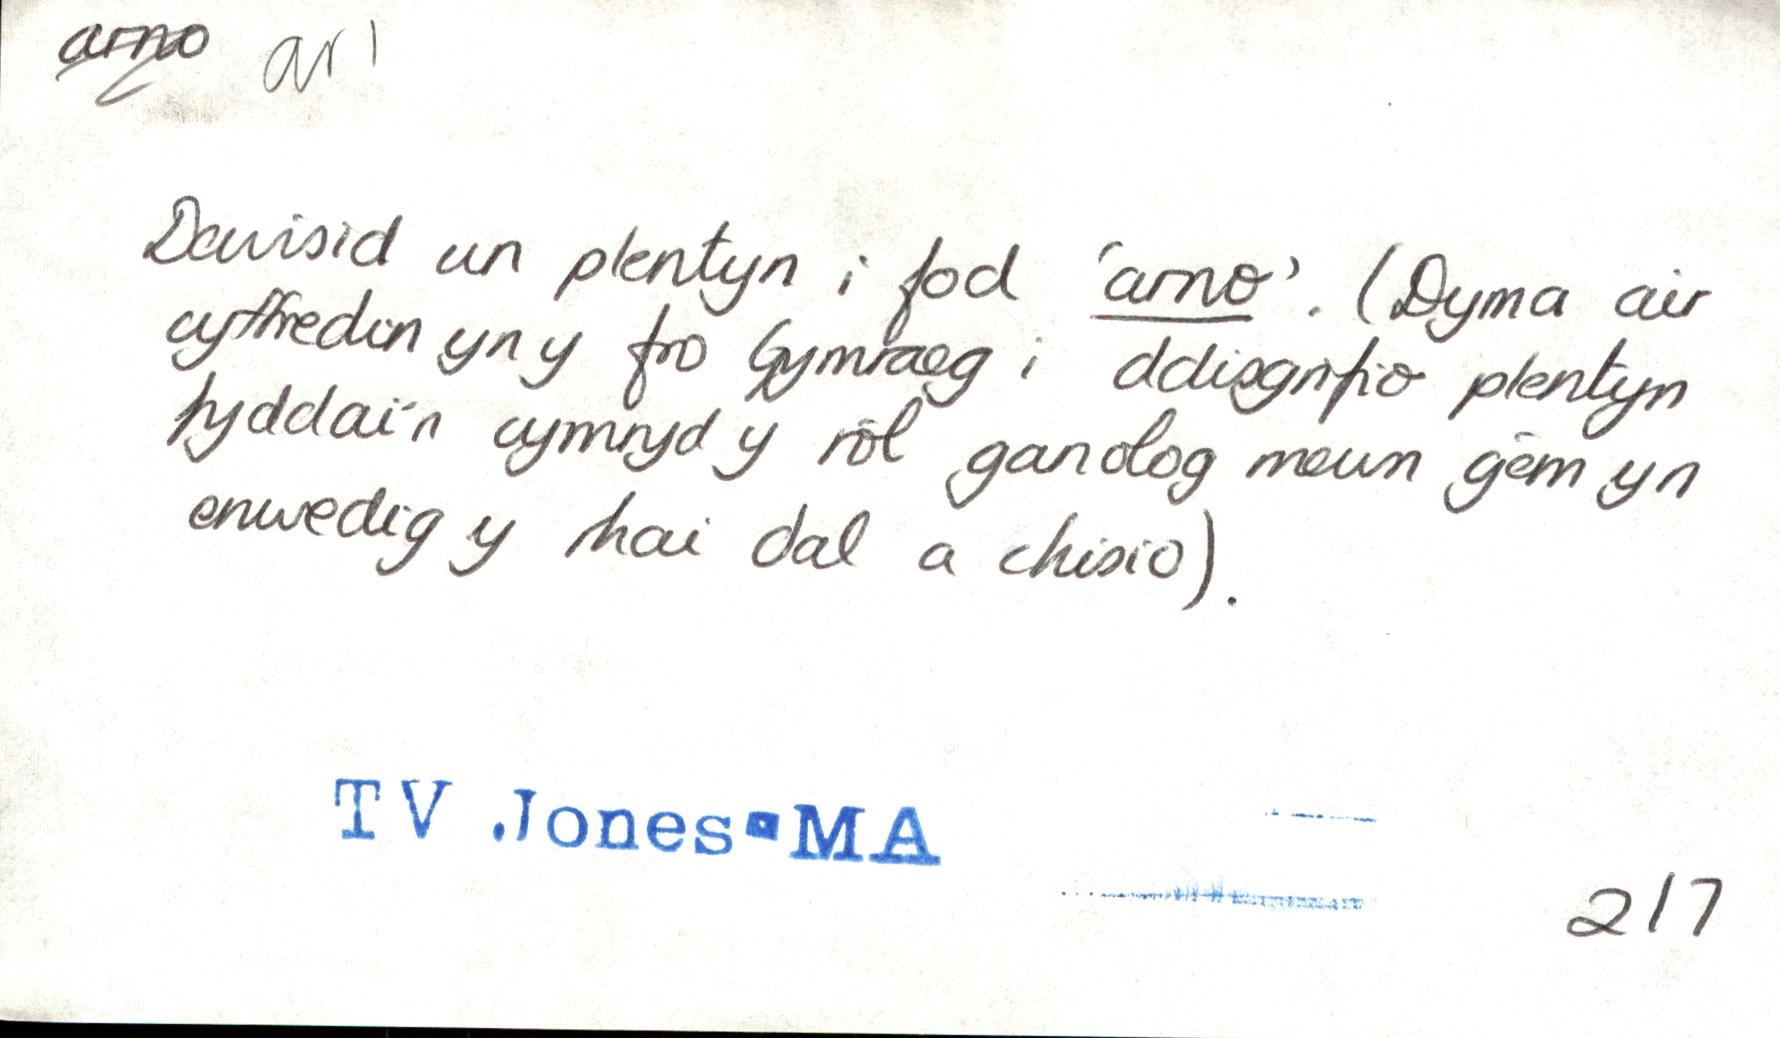 arno ar1
Dewisid un plentyn i fod 'arno'. (Dyma air
cyffredin yn y fro Gymraeg i ddisgrifio plentyn
fyddai'n cymryd y rôl ganolog mewn gêm yn
enwedig y rhai dal a chisio).
TV Jones MA
217